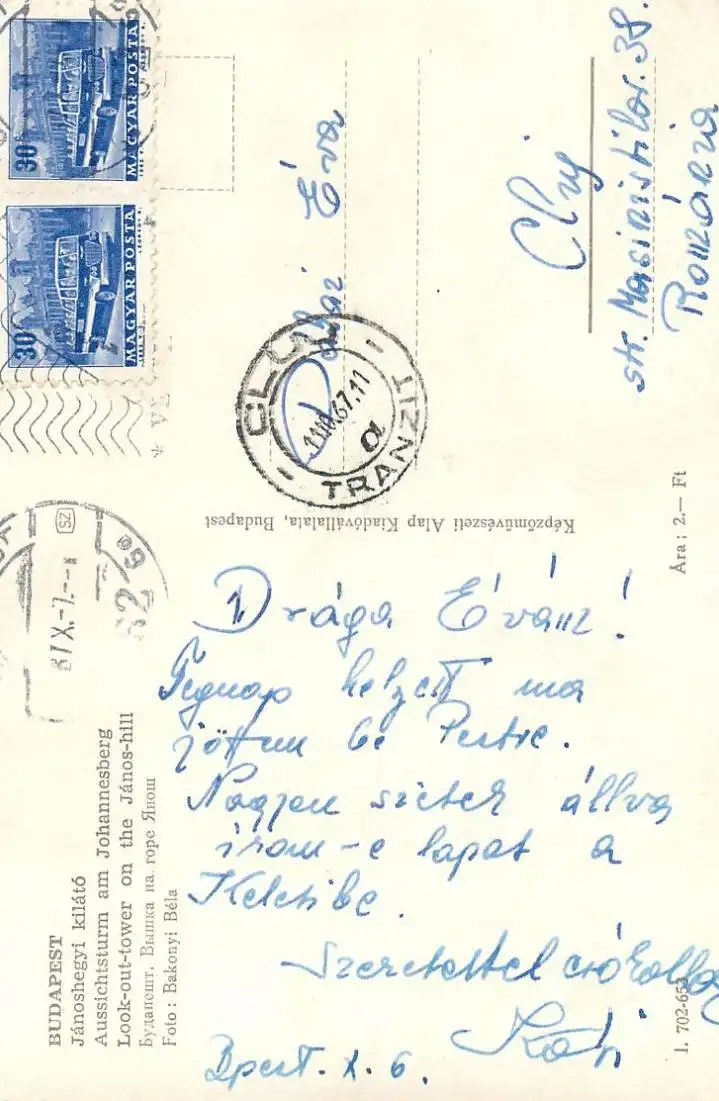 BUDAPEST
Jánoshegyi kilátó
Aussichtsturm am Johannesberg
Look-out-tower on the János-hill
Будапешт. Вышка на горе Янош
Foto: Bakonyi Béla
Drága Évám!
Tegnap helyett ma
jöttem be Pestre.
Nagyon sietek állva
írom-e lapot a
Keletibe.
Szeretettel csókollag
Kati
Bpest. X. 6.
Képzőművészeti Alap Kiadóvállalata, Budapest
Ára: 2.— Ft
30
MAGYAR POSTA
30
MAGYAR POSTA
CLUJ
67.11
TRANZIT
Éva
Cluj
str. Masinistilor. 38.
Románia